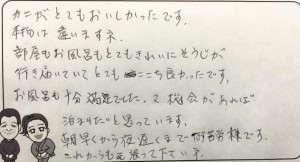 カニがとてもおいしかったです。
本物は違いますネ。
部屋もお風呂もとてもきれいにそうじが
行き届いていてとても ここち良かったです。
お風呂も十分満足でした。又機会があれば
泊まりたいと思っています。
朝早くから夜遅くまで御苦労様です。
これからも頑張って下さいネ。